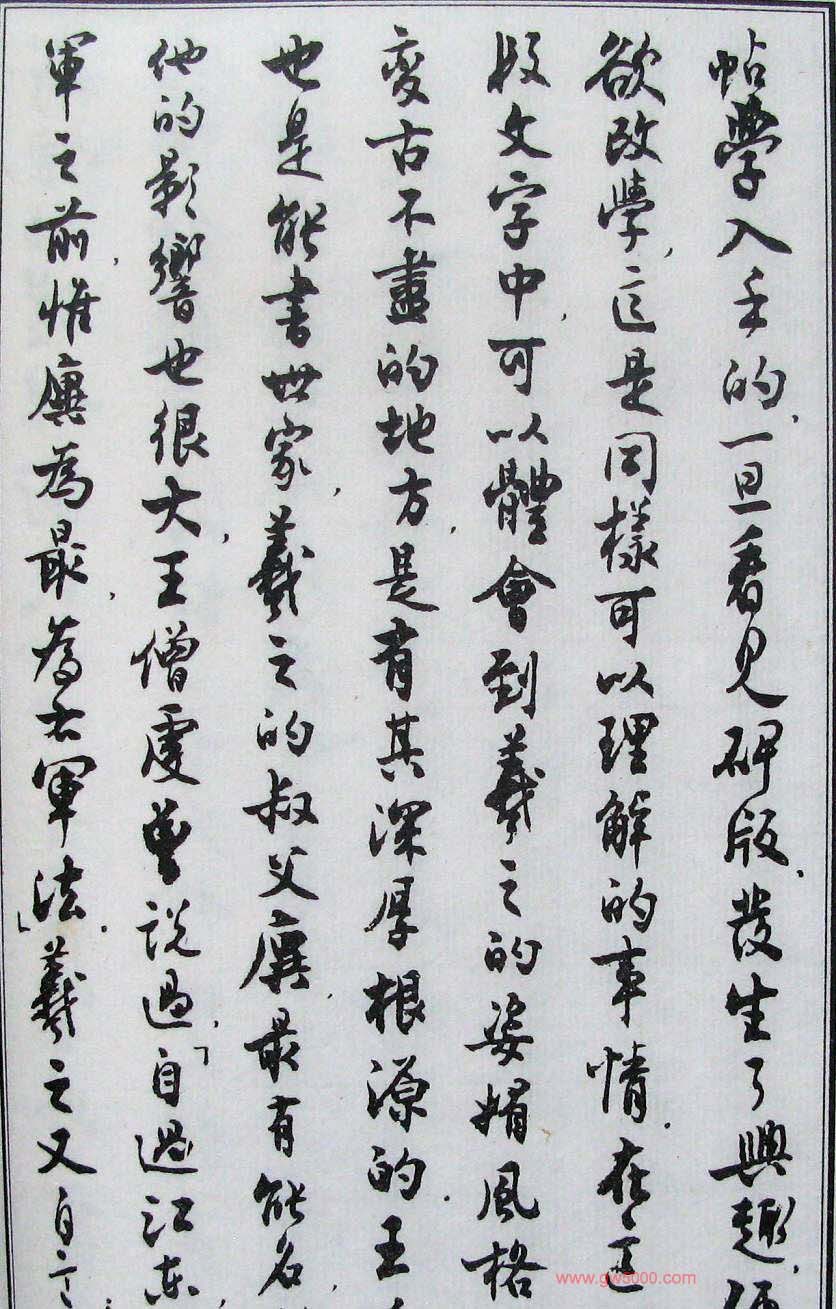 帖學入手的，一旦看見碑版，發生了興趣，便
欲改學，這是同樣可以理解的事情。在這
段文字中，可以體會到羲之的姿媚風格
變古不盡的地方，是有其深厚根源的。王
也是能書世家，羲之的叔父廙，最有能名
他的影響也很大，王僧虔曾説過，「自過江東
軍之前，惟廙為最，為右軍法」。羲之又自言
www.gw5000.com